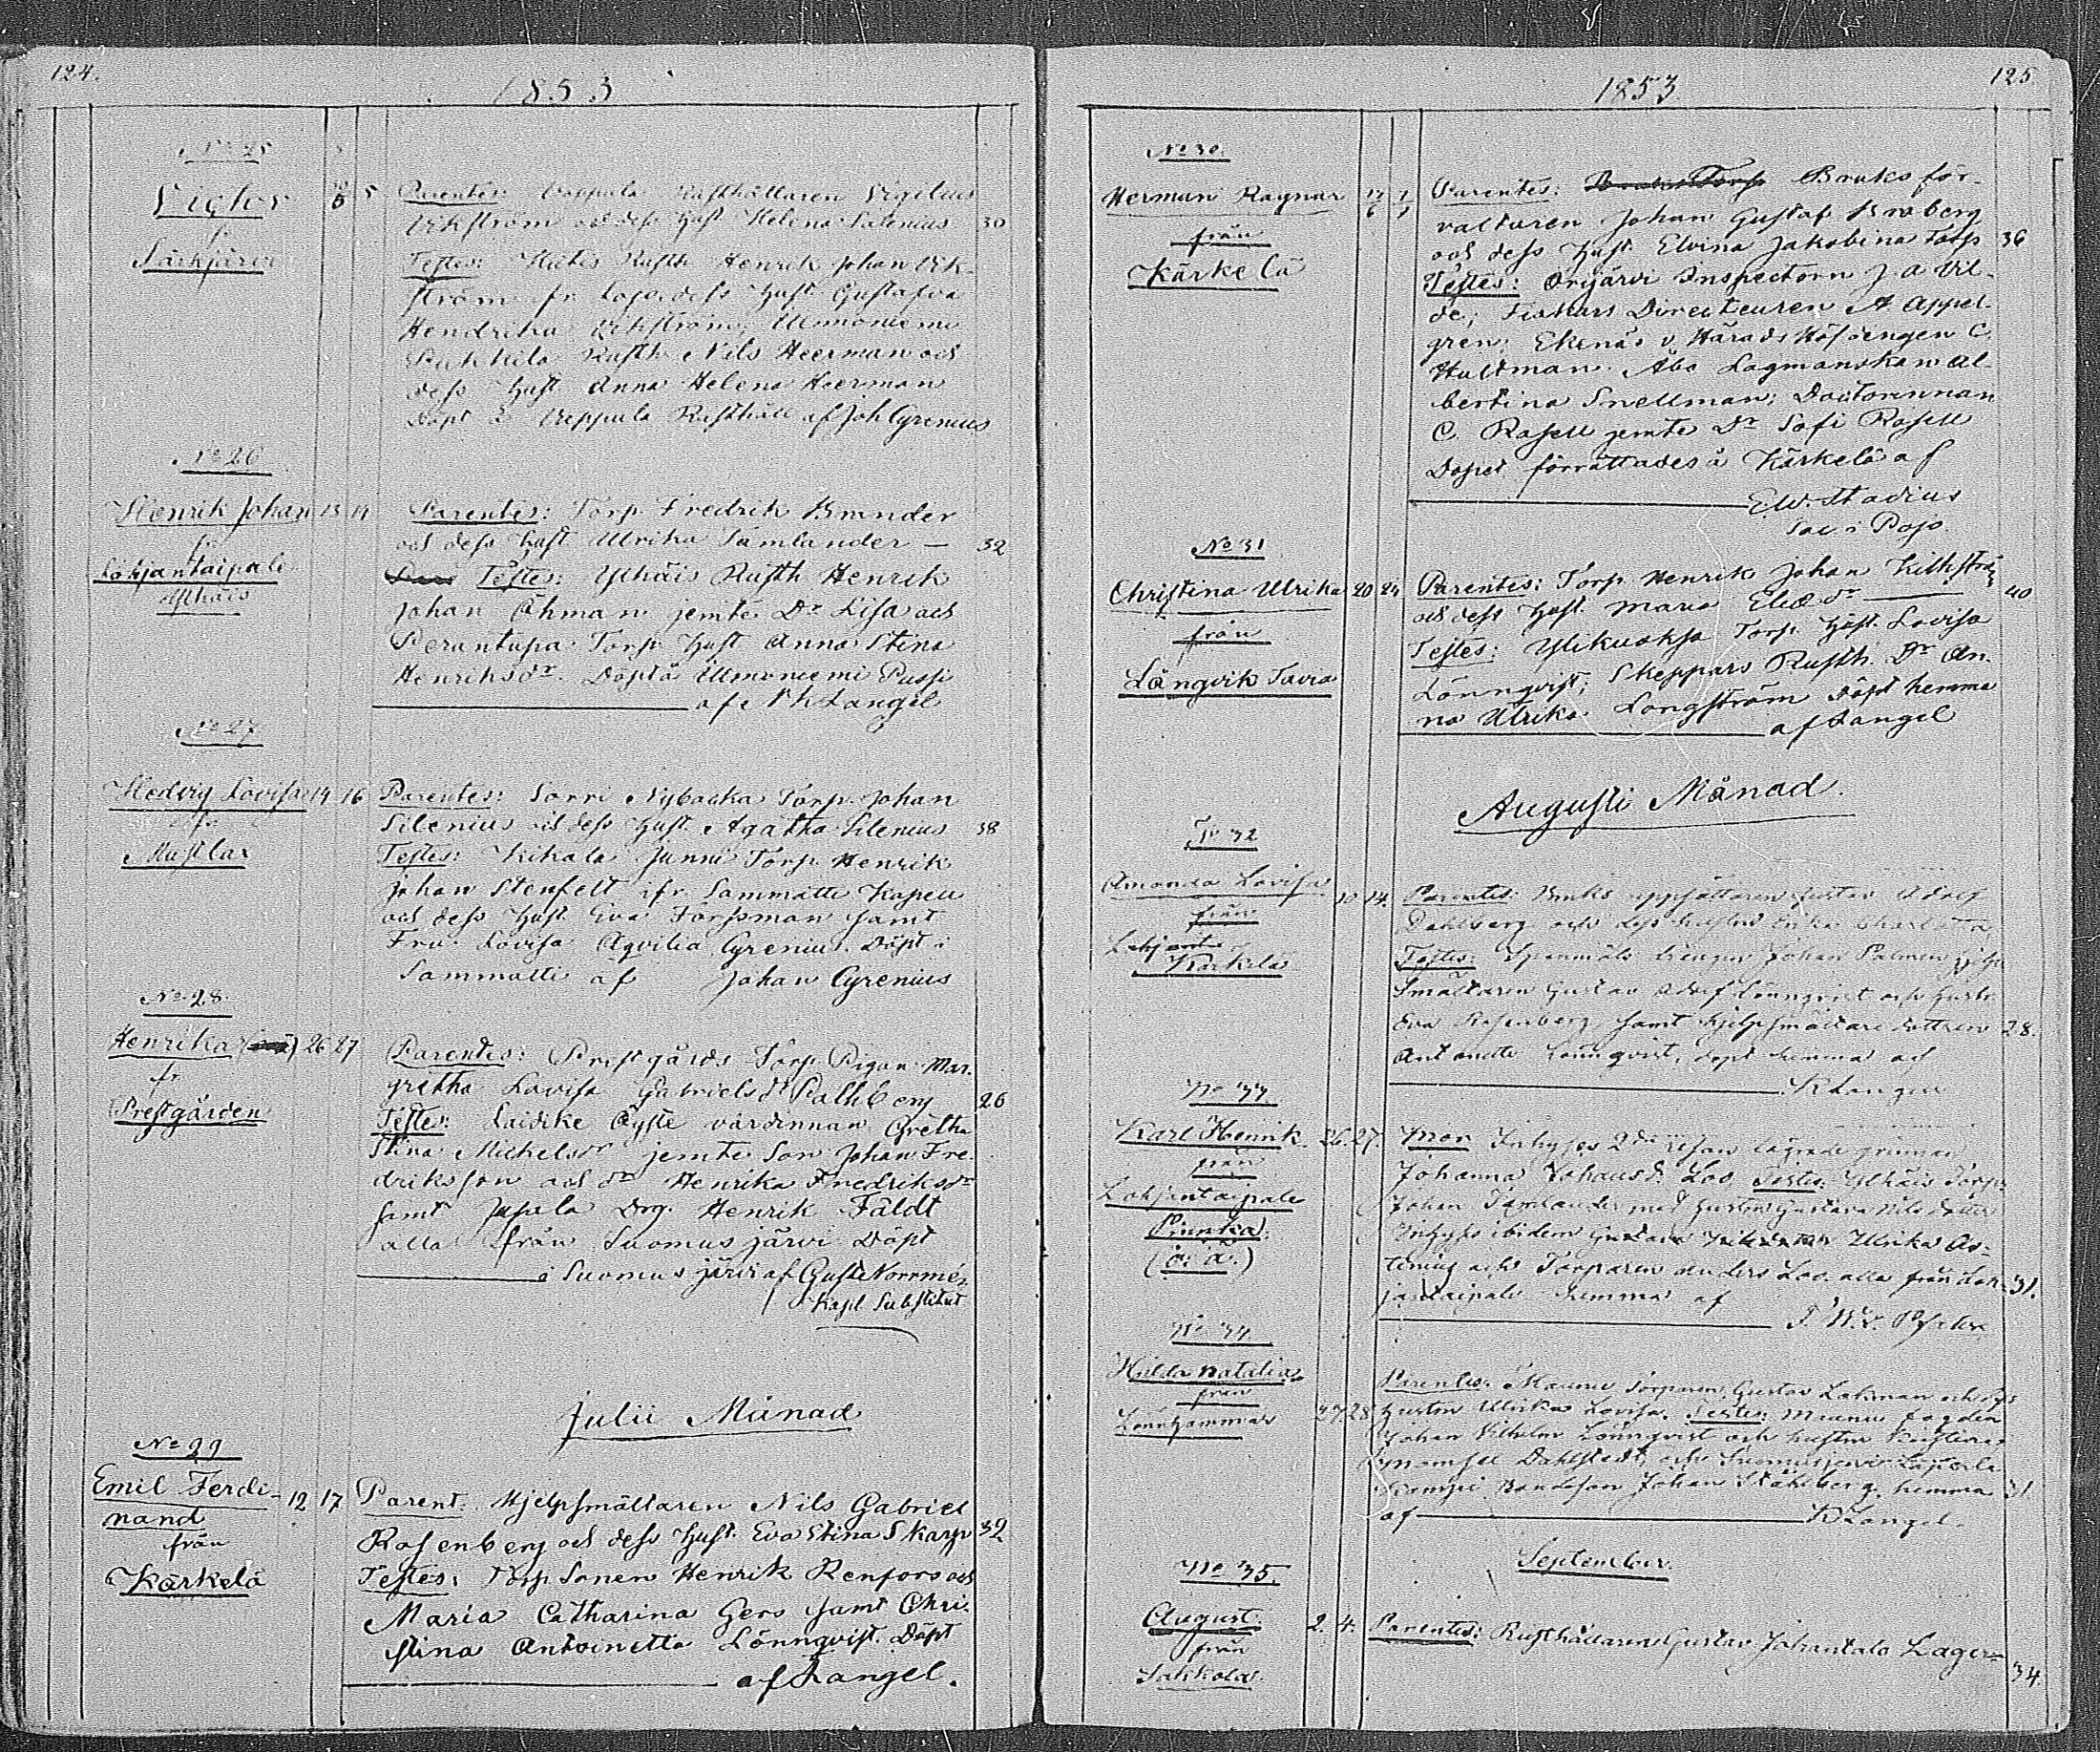 124.
1853
No 25
Victor
fr
Särkjärvi
30 5
5
Parentes: Rusthållaren Vigelius
Ekström och dess Hust Helena Salenius 30
Testes: Rusth Henrik Johan Ek-
ström fr Lojo dess Hust Gustafva
Hendrika Ekström; Ummoniemi
Pukkila Rusth. Nils Heerman och
dess Hust Anna Helena Heerman
Döpt å Veppula Rusthåll af Joh Cyrenius
No 26
Henrik Johan 13 14
fr
Lohjantaipale
Ylhäis
Parentes: Torp. Fredrik Brunder
och dess Hust Ulrika Tamlander — 32
Testes: Ylhäis Rusth Henrik
Johan Öhman jemte Dr Lisa och
Perantupa Torp. Hust Anna Stina
Henriksdr. Döpt å Ummoniemi Pussi
af Langel
No 27
Hedvig Lovisa 14 16
fr
Mustlax
Parentes: Sorri Nybacka Torp. Johan
Silenius och dess Hust. Agatha Silenius 38
Testes: Kikala Junni Torp. Henrik
Johan Stenfelt ifr. Sammatti Kapell
och dess Hust Eva Forssman samt
Fru Lovisa Aqvilia Cyrenius. Döpt i
Sammatti af Johan Cyrenius
No 28.
Henrika 26 27
fr.
Prestgården
Parentes: Prestgårds Torp. Pigan Mar-
gretha Lovisa Gabrielsdr Kalhberg 26
Testes: Laidike Öyste värdinnan Gretha
Stina Michelsdr jemte Son Johan Fre-
driksson och dr Henrika Fredriksdr
samt Jupala Drg. Henrik Fäldt
alla från Suomusjärvi Döpt
i Suomusjärvi af Gust Norrmén
Kapl Substitut
Julii Månad
No 29
Emil Ferdi- 12 17
nand
från
Kärkelä
Parent: Hjelpsmältaren Nils Gabriel
Rosenberg och dess Hust. Eva Stina Skarp 32
Testes: Torp Sonen Henrik Renfors och
Maria Catharina Gers samt Chri-
stina Antoinetta Lönnqvist. Döpt
af Langel.
1853
125
No 30.
Herman Ragnar 17 1
6 7
från
Kärkelä
Parentes: Bruks för-
valtaren Johan Gustaf Broberg
och dess Hust. Elvina Jakobina Torp 36
Testes: Orijärvi Inspectorn J. A Vil-
de; Fiskars Directeuren A Appel-
gren; Ekenäs v. Härads Höfdingen C.
Hultman. Åbo Lagmanskan Al-
bertina Snellman; Doctorinnan
C. Rosell jemte Dr Sofi Rosell
Dopet förrättades å Kärkelä af
E.W. Stadius
Sac. i Pojo.
No 31
Christina Ulrika 20 24
från
Långvik Tavia
Parentes: Torp. Henrik Johan Lithström
och dess Hust. Maria 40
Testes: Ylikuoksa Torp. Hust. Lovisa
Lönnqvist; Skeppars Rusth. Dr An-
na Ulrika Longström Döpt hemma
af Langel
Augusti Månad.
No 32
Amanda Lovisa 10 14.
från
Lohjant
Kärkelä
Parentes: Bruks uppsättaren Gustav Adolf
Dahlberg och dess hustru Erika Charlotta
Testes: Drängen Johan Palmén
Smältaren Gustav Adolf Lönnqvist och hustr.
Eva Rosenberg samt hjelpsmältare dottren 28.
Antonette Lönnqvist, döpt hemma af
Langel
No 33.
Karl Henrik. 26. 27.
från
Lohjantaipale
Piunka.
(o. ä.)
Mor Inhyses 2dra resan lägrade qvinnan
Johanna Johansd. Loo. Testes: Ylhäis Torp.
Johan Tamlander med hustru Gustava Nilsdotter
Inhyses ibidem Ulrika As-
tenius och Torparen Anders Loo alla från Loh- 31.
jantaipale hemma af
No 34.
Hilda Natalia.
från
Lönnhammar 27 28
Parentes. Torparen Gustav Lahman och dess
Hustru Ulrika Lovisa. Testes: fogden
Johan Vilhelm Lönnqvist och hustru
mamsell Dahlstedt, och Suomusjervi
Bondeson Johan Ståhlberg. hemma 31
af Langel.
September.
No 35.
August. 2. 4.
från
Sakkola.
Parentes: Rusthållaren Gustav Johantalo Lager-
34.